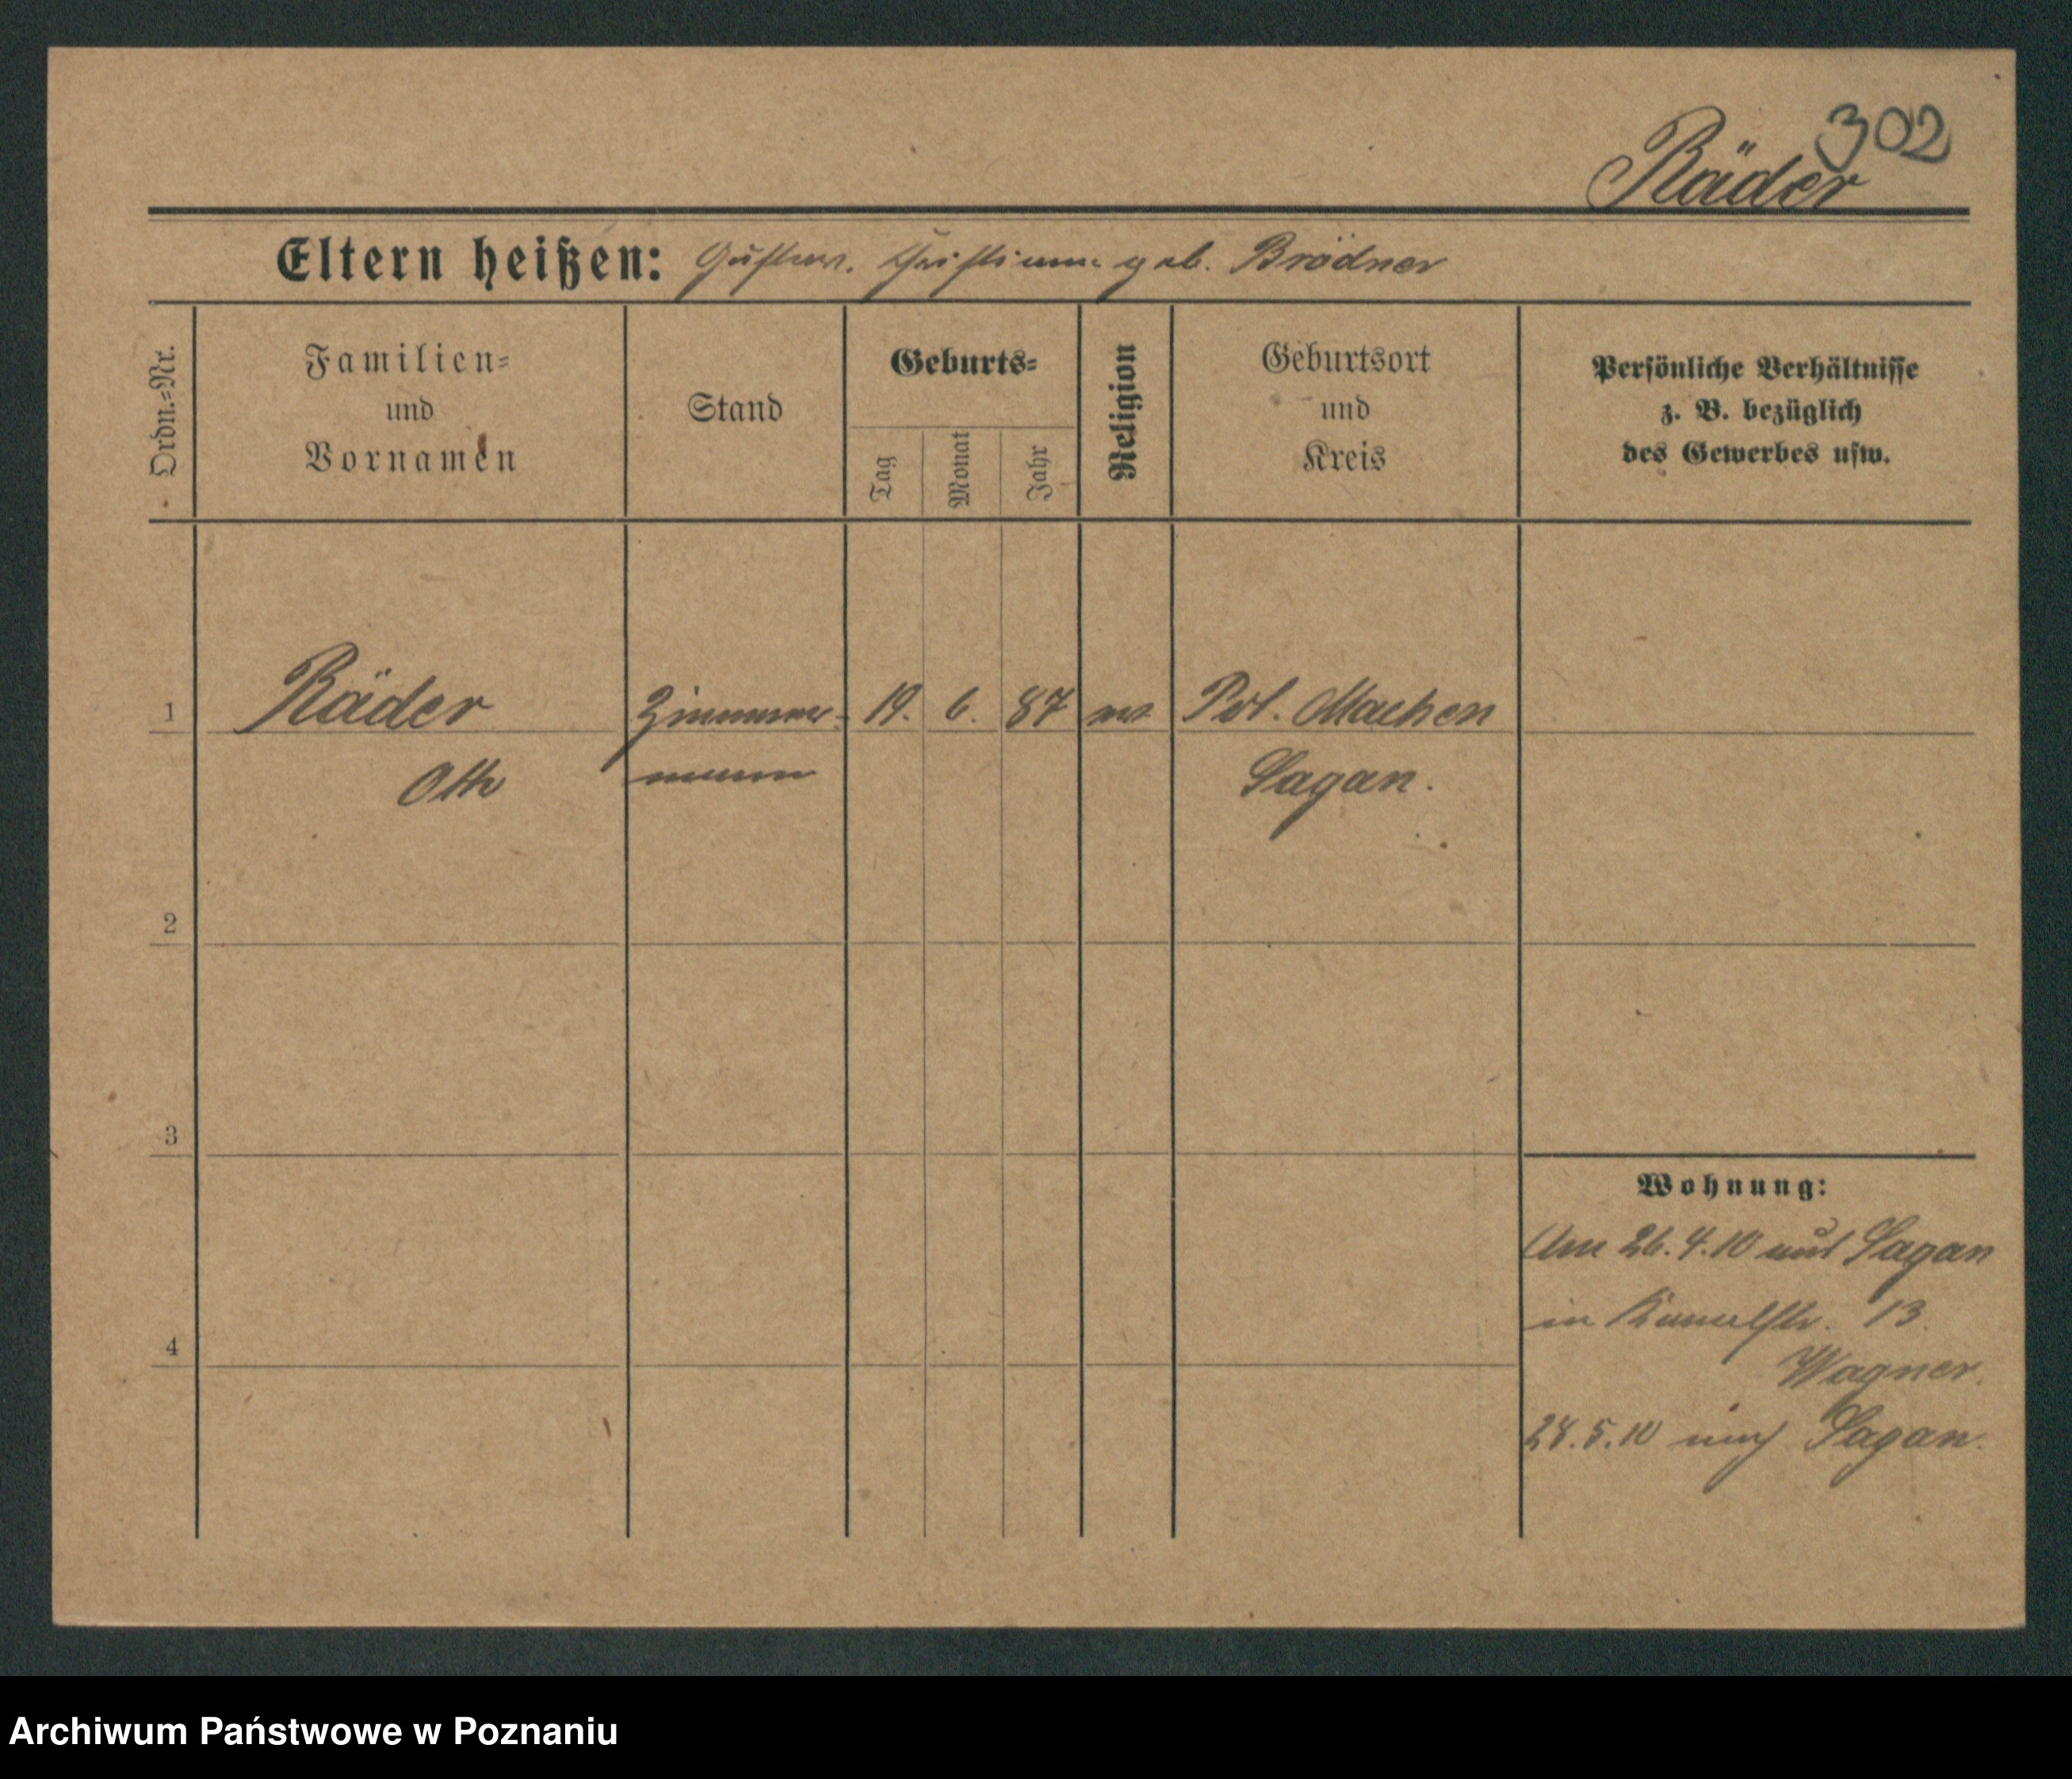 302
Räder
Eltern heißen: Gustav. Christiane geb. Brödner
Ordn.-Nr.
Familien-
und
Vornamen
Stand
Geburts-
Tag
Monat
Jahr
Religion
Geburtsort
und
Kreis
Persönliche Verhältnisse
z. B. bezüglich
des Gewerbes usw.
1 Räder Zimmer- 19. 6. 87 ev Pol. Machen
Otto mann Sagan.
2
3
4
Wohnung:
Am 26.4.10 aus Sagan
in Kanalstr. 13.
Wagner.
28.5.10 nach Sagan.
Archiwum Państwowe w Poznaniu